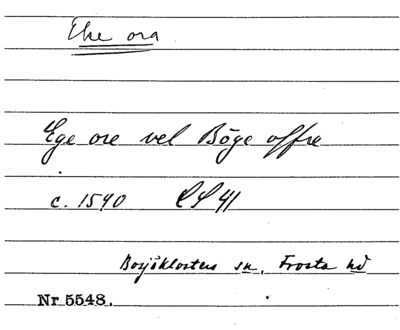 Eke ora
Ege ore vel Böge offre
c. 1590 LS 41
Bosjöklosters sn, Frosta hd
Nr 5548.